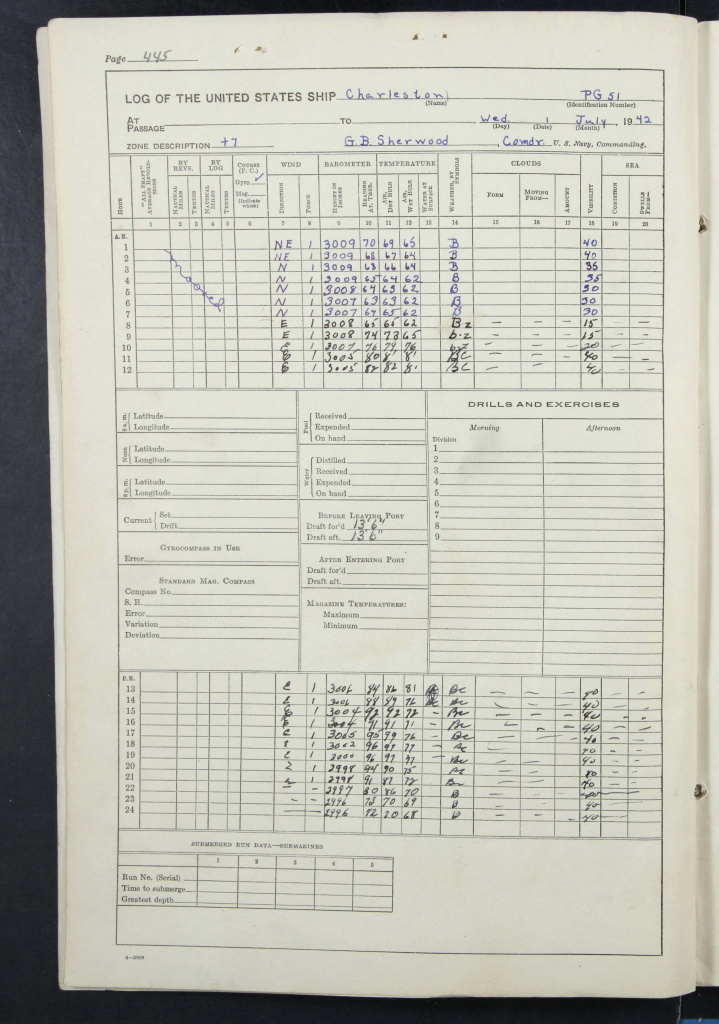 Page 445
LOG OF THE UNITED STATES SHIP Charleston PG 51
(Name) (Identification Number)
AT
PASSAGE TO Wed. 1 July, 1942
(Day) (Date) (Month)
ZONE DESCRIPTION +7 G.B. Sherwood, Comdr. U. S. Navy, Commanding.
HOUR "ALL SHAFT" AVERAGE REVOLUTIONS BY REVS. BY LOG COURSE (P. C.) Gyro ✓ Mag. (Indicate which) WIND BAROMETER TEMPERATURE WEATHER, BY SYMBOLS CLOUDS VISIBILITY SEA
NAUTICAL MILES TENTHS NAUTICAL MILES TENTHS DIRECTION FORCE HEIGHT IN INCHES READING AT. THER. AIR, DRY BULB AIR, WET BULB WATER AT SURFACE FORM MOVING FROM— AMOUNT CONDITION SWELLS FROM—
1 2 3 4 5 6 7 8 9 10 11 12 13 14 15 16 17 18 19 20
A.M.
1 NE 1 3009 70 69 65 B 40
2 NE 1 3009 68 67 64 B 40
3 N 1 3009 68 66 64 B 35
4 N 1 3009 65 64 62 B 35
5 N 1 3008 64 63 62 B 30
6 N 1 3007 63 63 62 B 30
7 N 1 3007 64 65 62 B 30
moored
8 E 1 3008 65 65 62 Bz — — — 15 — —
9 E 1 3008 74 73 65 b-z — — — 15 — —
10 E 1 3007 76 79 76 b-z — — — 20 — —
11 E 1 3005 80 81 81 BC — — — 40 — —
12 E 1 3005 82 82 81 BC — — — 40 — —
8 a. m. Latitude
Longitude
Noon Latitude
Longitude
8 p. m. Latitude
Longitude
Current Set
Drift
GYROCOMPASS IN USE
Error
STANDARD MAG. COMPASS
Compass No.
S. H.
Error
Variation
Deviation
Fuel Received
Expended
On hand
Water Distilled
Received
Expended
On hand
BEFORE LEAVING PORT
Draft for'd 13'6"
Draft aft. 13'6"
AFTER ENTERING PORT
Draft for'd
Draft aft.
MAGAZINE TEMPERATURES:
Maximum
Minimum
DRILLS AND EXERCISES
Morning Afternoon
Division
1
2
3
4
5
6
7
8
9
P.M.
13 E 1 3006 84 86 81 Bc — — —
14 1 3006 88 89 76 Bc — — — 40 — —
15 E 1 3004 92 92 72 — Bc — — — 40
16 E 1 3004 91 91 71 — Bc 40 — —
17 E 1 3005 95 99 76 — Bc — — — 40 — —
18 1 3002 96 98 77 — Bc — — — 40 — —
19 1 3000 96 97 77 Bc — — — 40 — —
20 1 2998 94 90 75 Bc — — —
21 1 2998 91 87 72 — — — 40 — —
22 — — 2997 80 86 70 B — — — 40 — —
23 — — 2996 73 70 69 B — — — 40 — —
24 — 2996 72 70 68 b — — — 40 — —
SUBMERGED RUN DATA—SUBMARINES
1 2 3 4 5
Run No. (Serial)
Time to submerge
Greatest depth